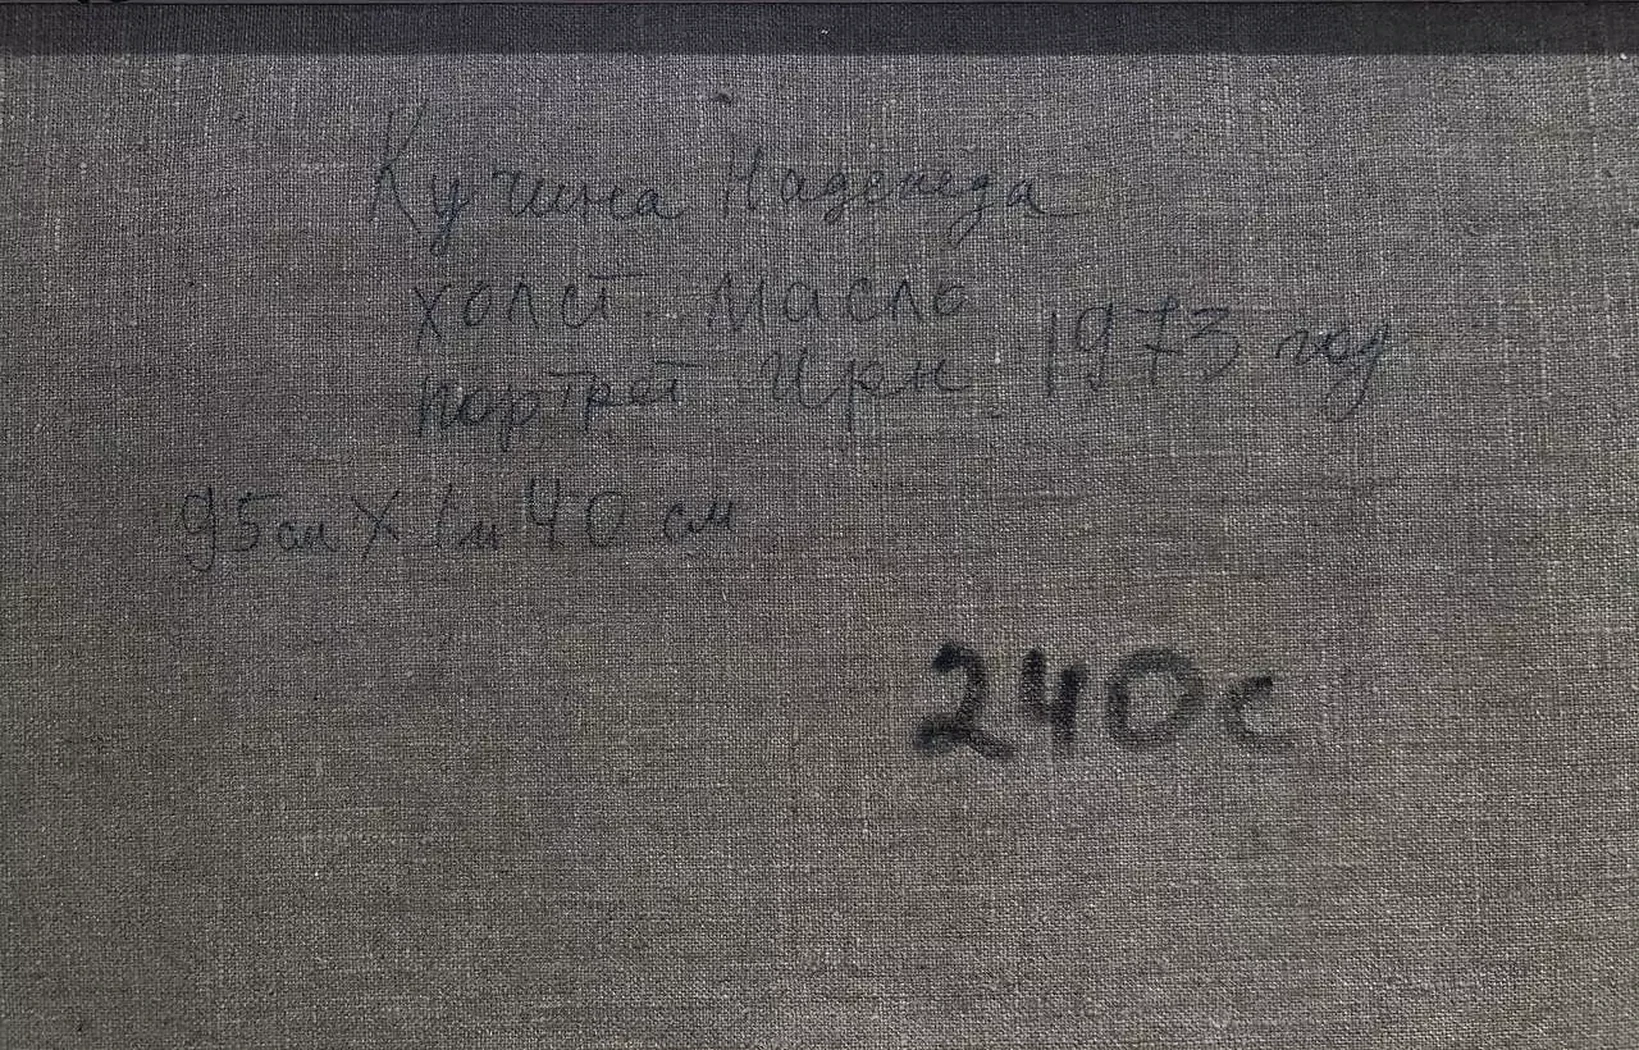 Кучина Надежда
холст. Масло
портрет Ирн. 1973 год
95см X 1м 40 см
240с